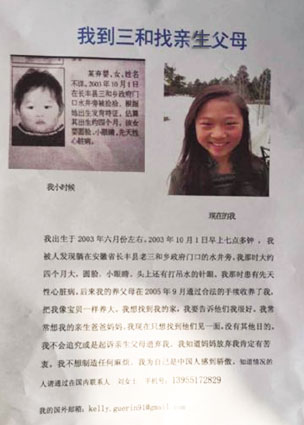 我到三和找亲生父母
某弃婴、女、姓名
不详，2003年10月1日
在长丰县三和乡政府门
口水井旁被捡拾，根据
她出生发育特征，估算
其出生约四个月，该女
婴面脸、小眼睛、先天性
心脏病。
我小时候
现在的我
我出生于 2003 年六月份左右，2003 年 10 月 1 日早上七点多钟，我
被人发现躺在安徽省长丰县老三和乡政府门口的水井旁，我那时大约
四个月大，圆脸，小眼睛，头上还有打吊水的针眼，我那时患有先天
性心脏病，后来我的养父母在 2005 年 9 月通过合法的手续收养了我，
把我像宝贝一样养大，我想找到我的家，我要告诉他们我很好，我常
常想我的亲生爸爸妈妈，我现在只想找到他们见一面，没有其他目的，
我不会追究或是起诉亲生父母遗弃我，我知道妈妈放弃我肯定有苦
衷，我不想制造任何麻烦，我为自己是中国人感到骄傲，知道情况的
人请通过在国内联系人 刘女士 手机号：13955172829
我的国外邮箱：kelly.guerin91@gmail.com